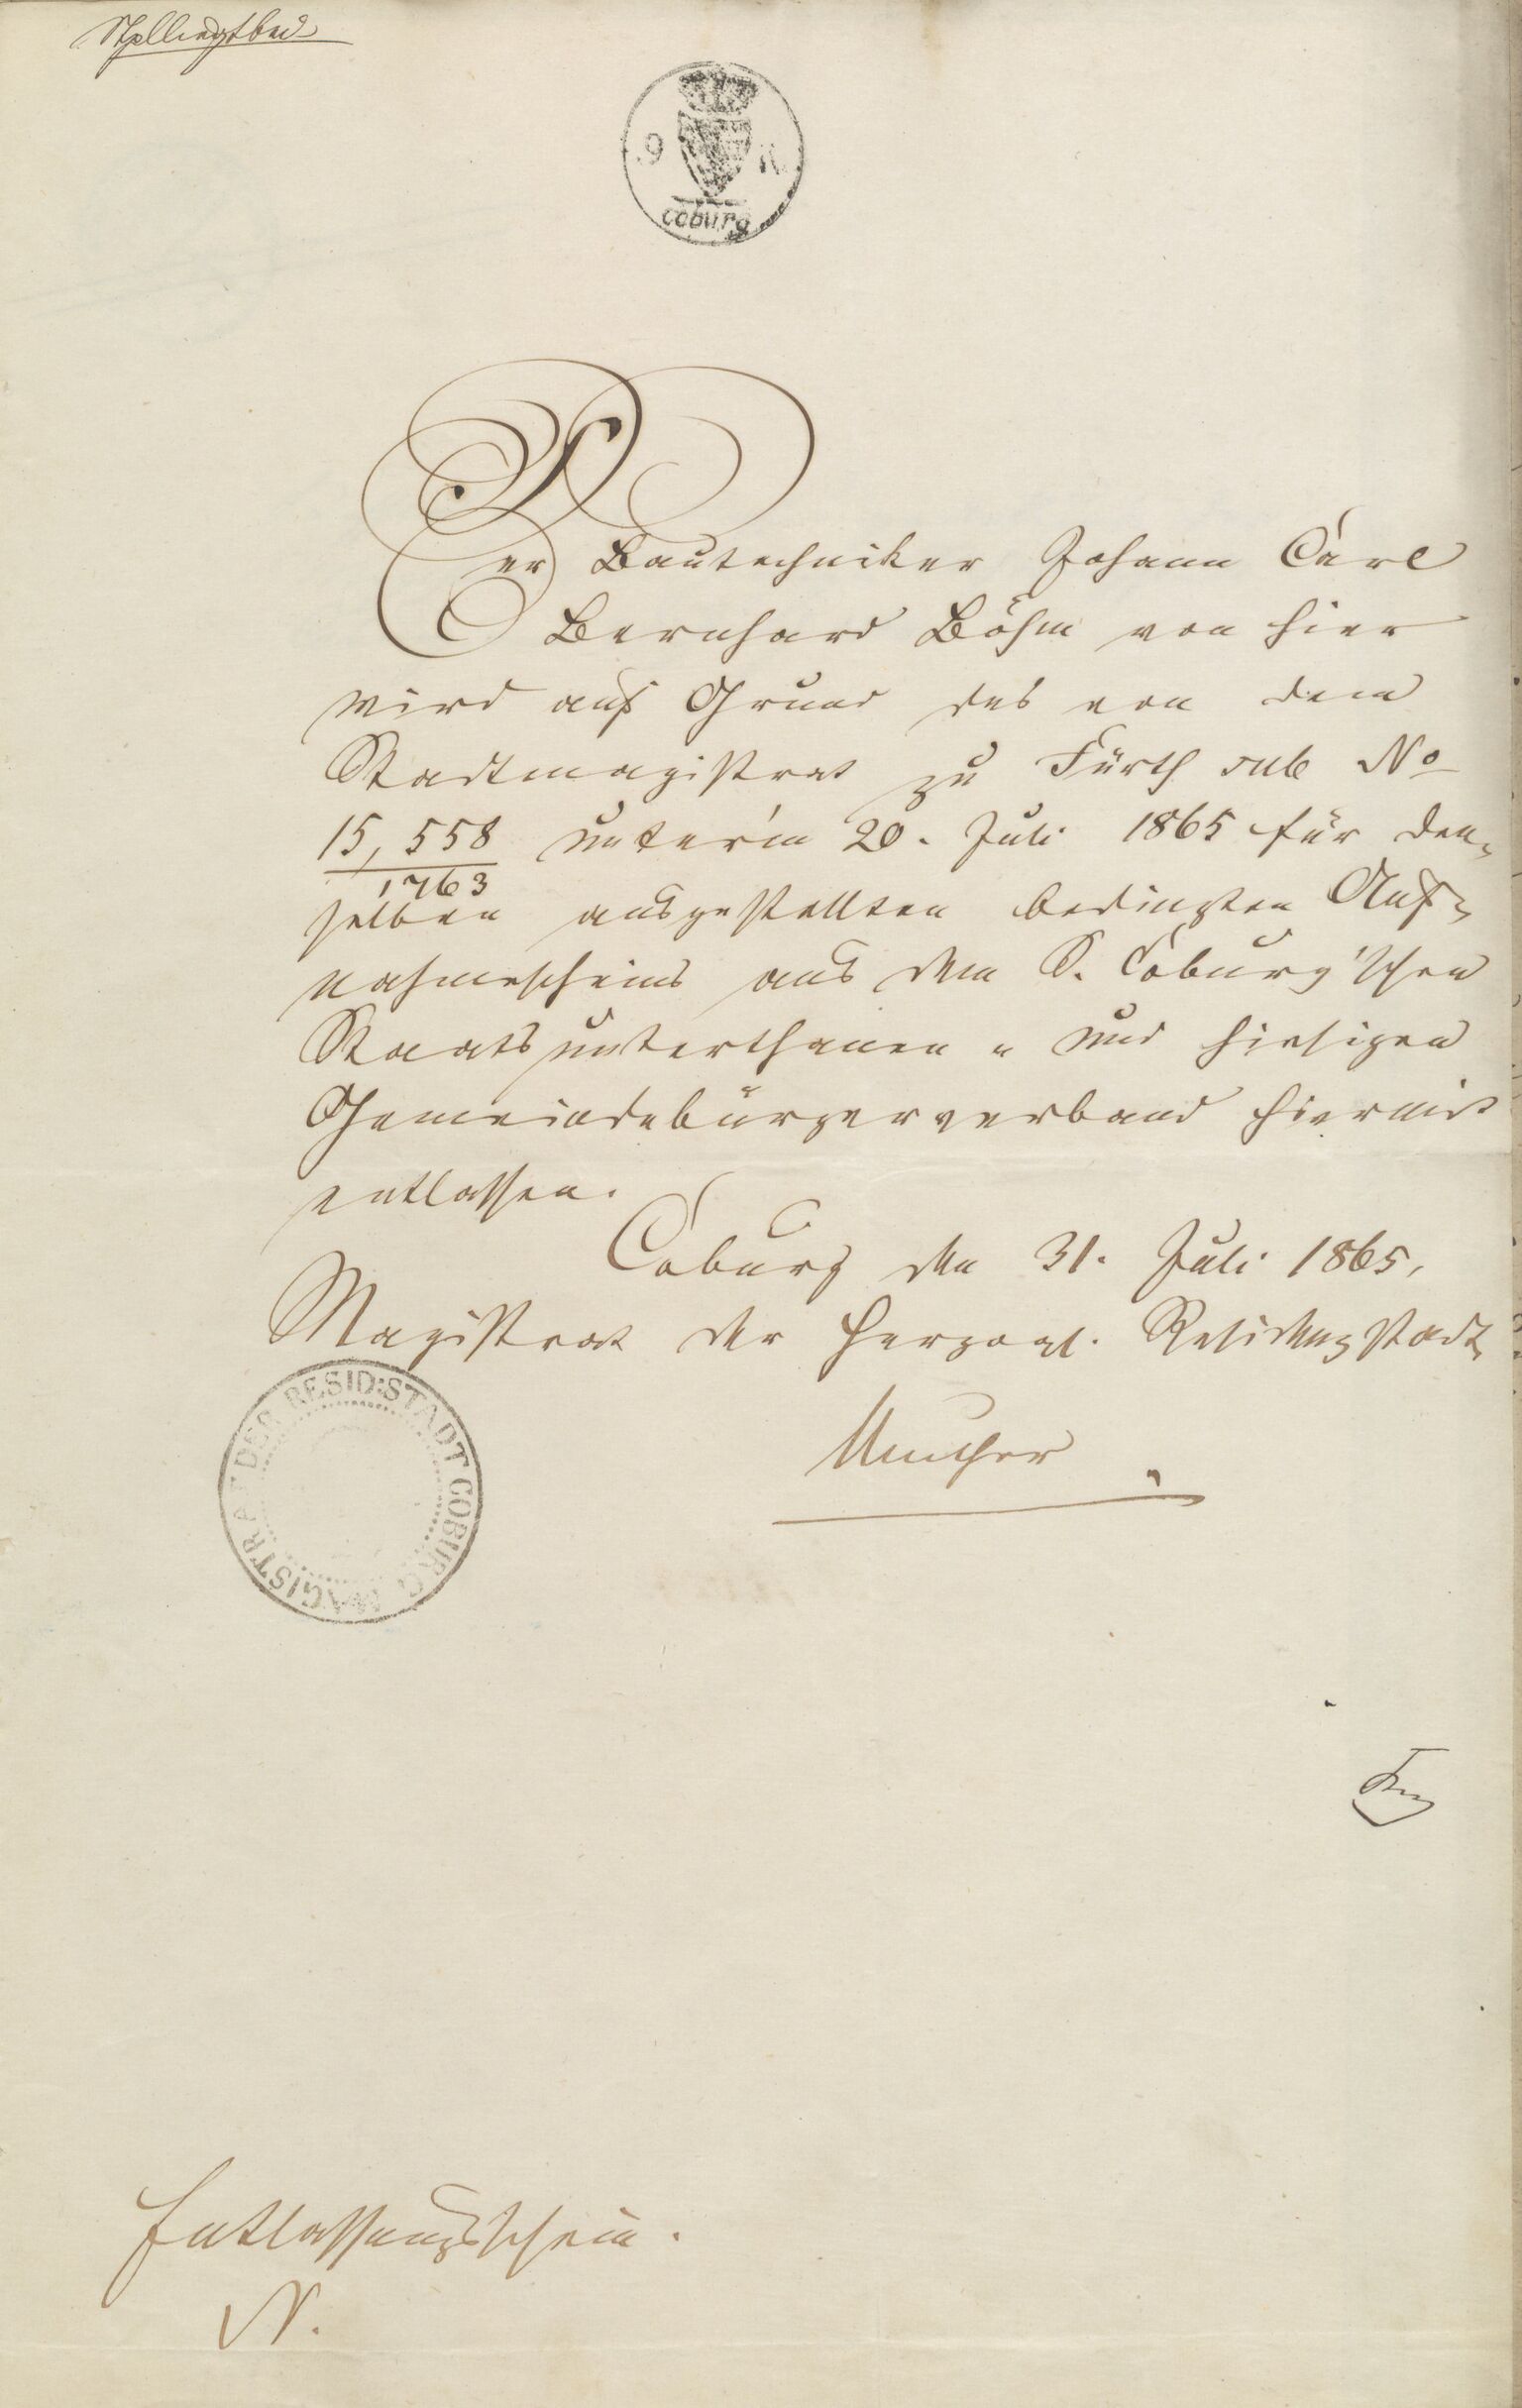 9 K.
Coburg
Der Bautechniker Johann Carl
Bernhard Böhm von hier
wird auf Grund des von dem
Stadtmagistrat zu Fürth sub No
15,558 unter'm 20. Juli 1865 für den-
1763
selben ausgestellten bedingten Auf-
nahmescheins aus dem S. Coburg'schen
Staatsunterthanen- und hiesigen
Gemeindebürgerverband hiermit
entlassen.
Coburg den 31. Juli 1865.
Magistrat der Herzogl. Residenzstadt
MAGISTRAT DER RESID:STADT COBURG
Muther
Entlassungsschein.
N.